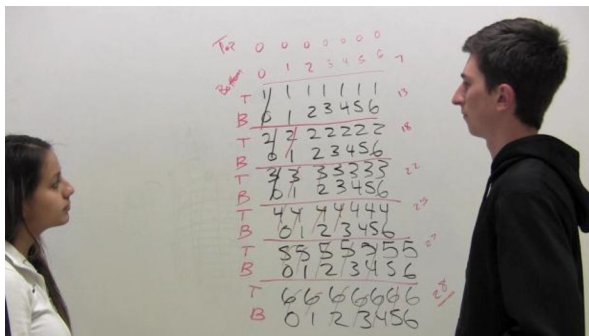 Top 0 0 0 0 0 0 0
Bottom 0 1 2 3 4 5 6 7
T 1 1 1 1 1 1 1 13
B 0 1 2 3 4 5 6
T 2 2 2 2 2 2 2 18
B 0 1 2 3 4 5 6
T 3 3 3 3 3 3 3 22
B 0 1 2 3 4 5 6
T 4 4 4 4 4 4 4 25
B 0 1 2 3 4 5 6
T 5 5 5 5 5 5 5 27
B 0 1 2 3 4 5 6
T 6 6 6 6 6 6 6 28
B 0 1 2 3 4 5 6